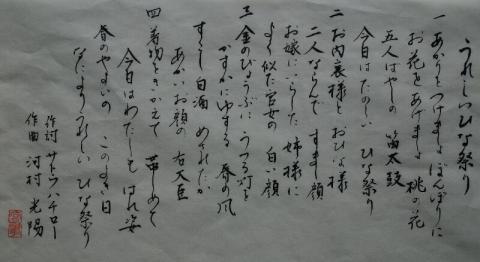 うれしいひな祭り
一 あかりをつけましょ ぼんぼりに
お花をあげましょ 桃の花
五人ばやしの 笛太鼓
今日はたのしい ひな祭り
二 お内裏様と おひな様
二人ならんで すまし顔
お嫁にいらした 姉様に
よく似た官女の 白い顔
三 金のびょうぶに うつる灯を
かすかにゆする 春の風
すこし白酒 めされたか
あかいお顔の 右大臣
四 着物をきかえて 帯しめて
今日はわたしも はれ姿
春のやよいの このよき日
なによりうれしい ひな祭り
作詞 サトウハチロー
作曲 河村 光陽